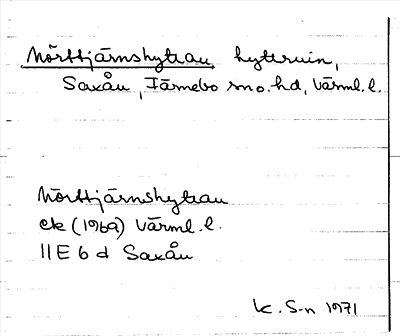 Mörttjärnshyttan hyttruin,
Saxån, Färnebo sn o. hd, Värml. l.
Mörttjärnshyttan
ek (1969) Värml. l.
11E 6 d Saxån
K. S-n 1971